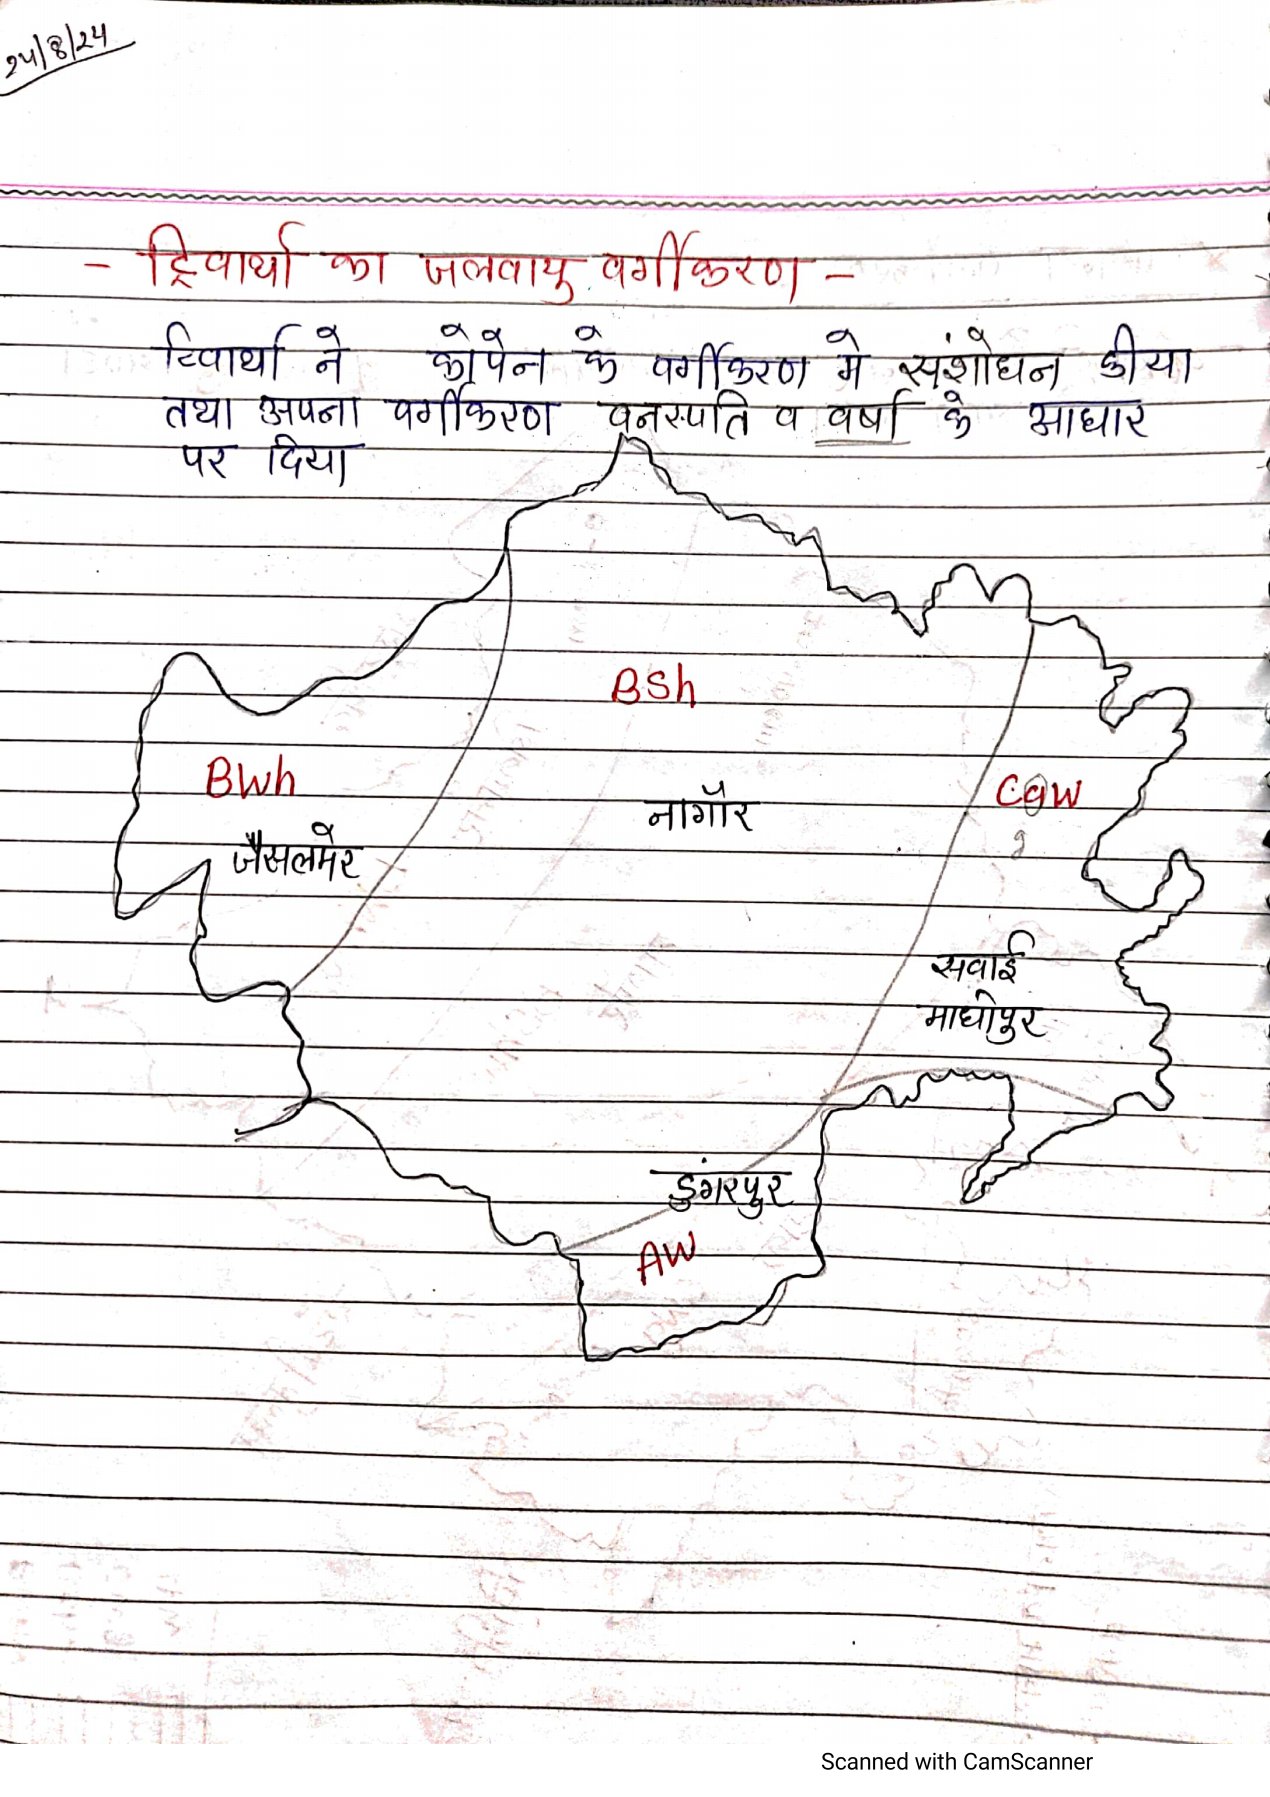 24/8/24
- ट्रिवार्था का जलवायु वर्गीकरण -
ट्विार्था ने कोपेन के वर्गीकरण मे संशोधन कीया
तथा अपना वर्गीकरण वनस्पति व वर्षा के आधार
पर दिया
BSh
BWh
नागौर
CaW
जैसलमेर
सवाई
माधोपुर
डुंगरपुर
AW
Scanned with CamScanner